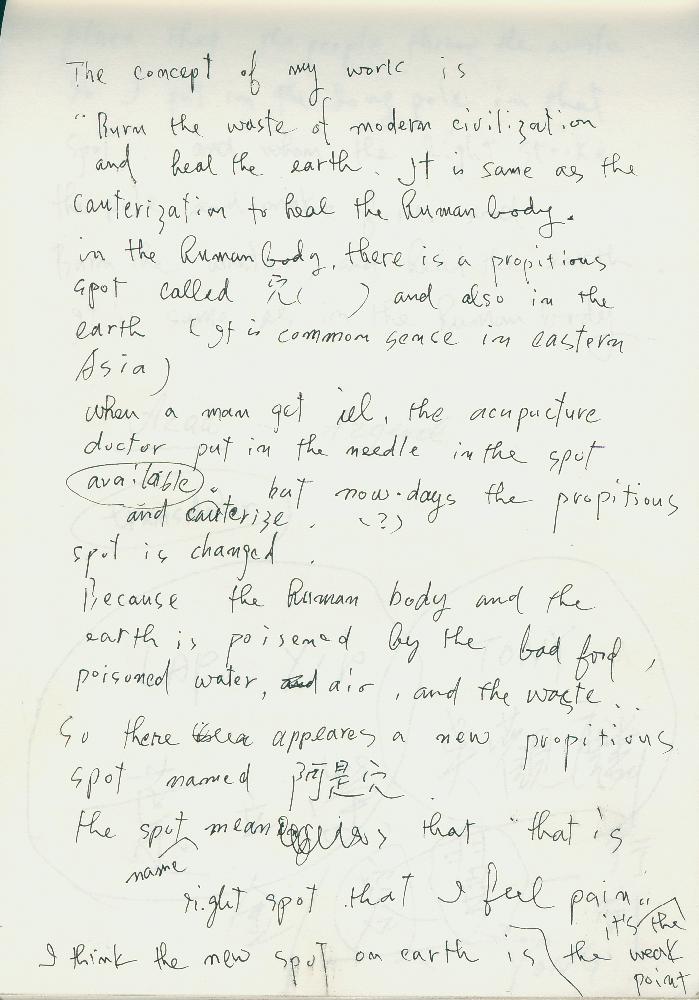 The concept of my work is
"Burn the waste of modern civilization
and heal the earth. It is same as the
cauterization to heal the human body.
in the human body, there is a propitious
spot called 穴(      ) and also in the
earth (It is common sence in eastern
Asia)
when a man get iel, the acupucture
doctor put in the needle in the spot
available. but now-days the propitious
and cauterize. (?)
spot is changed.
Because the human body and the
earth is poisened by the bad food,
poisoned water, and air, and the waste..
So there appeares a new propitious
spot named 阿是穴.
the spot means that "that is
name
right spot that I feel pain"
it's the
I think the new spot on earth is the weak
point